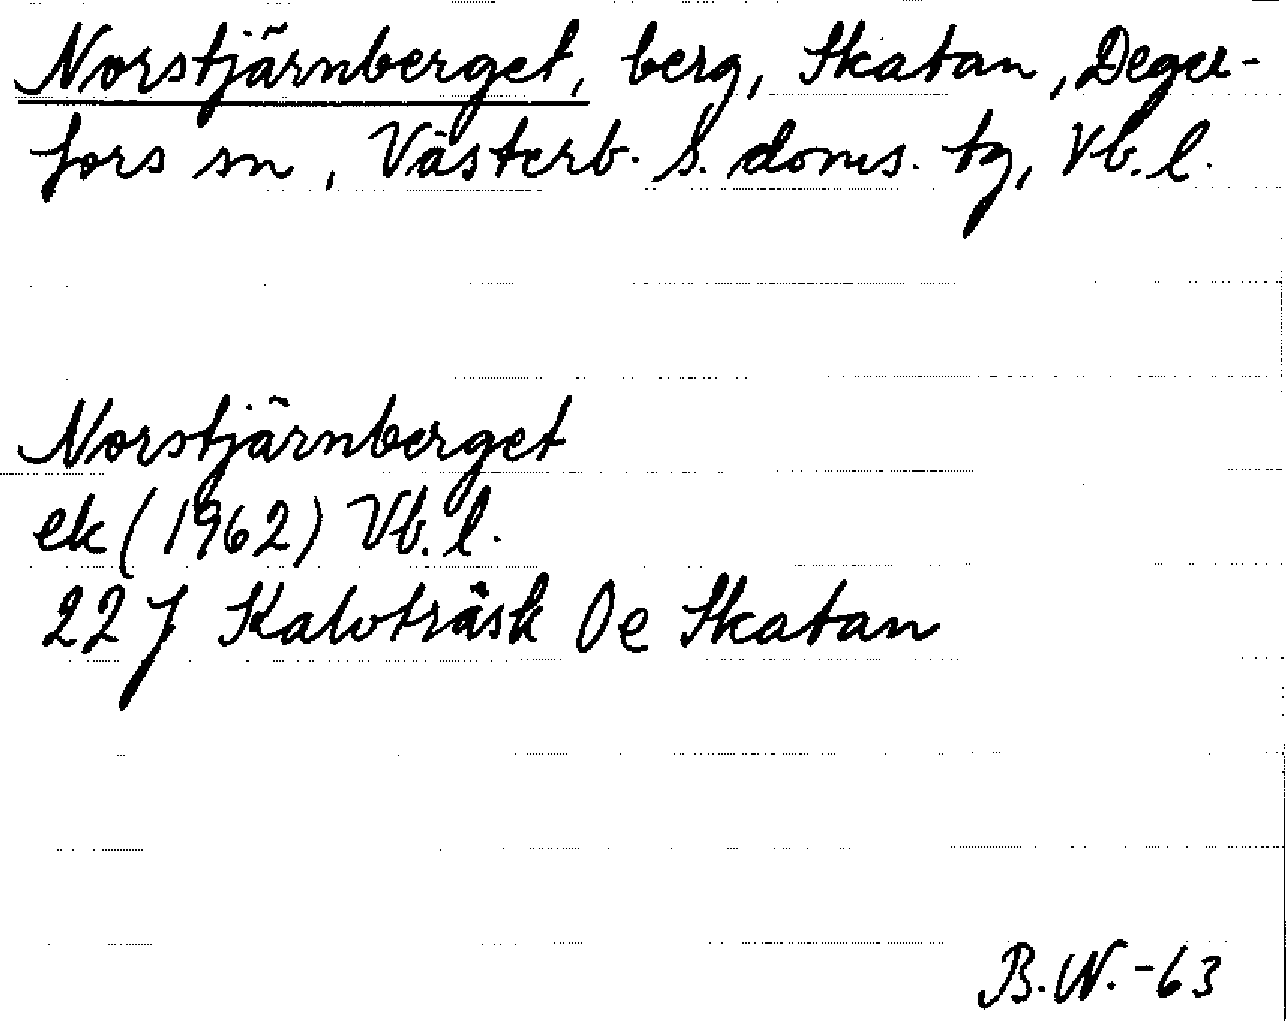 Norstjärnberget, berg, Skatan, Deger-
fors sn, Västerb. s. doms. tg, Vb. l.
Norstjärnberget
ek (1962) Vb. l.
22 J Kalvträsk 0e Skatan
B.W.-63